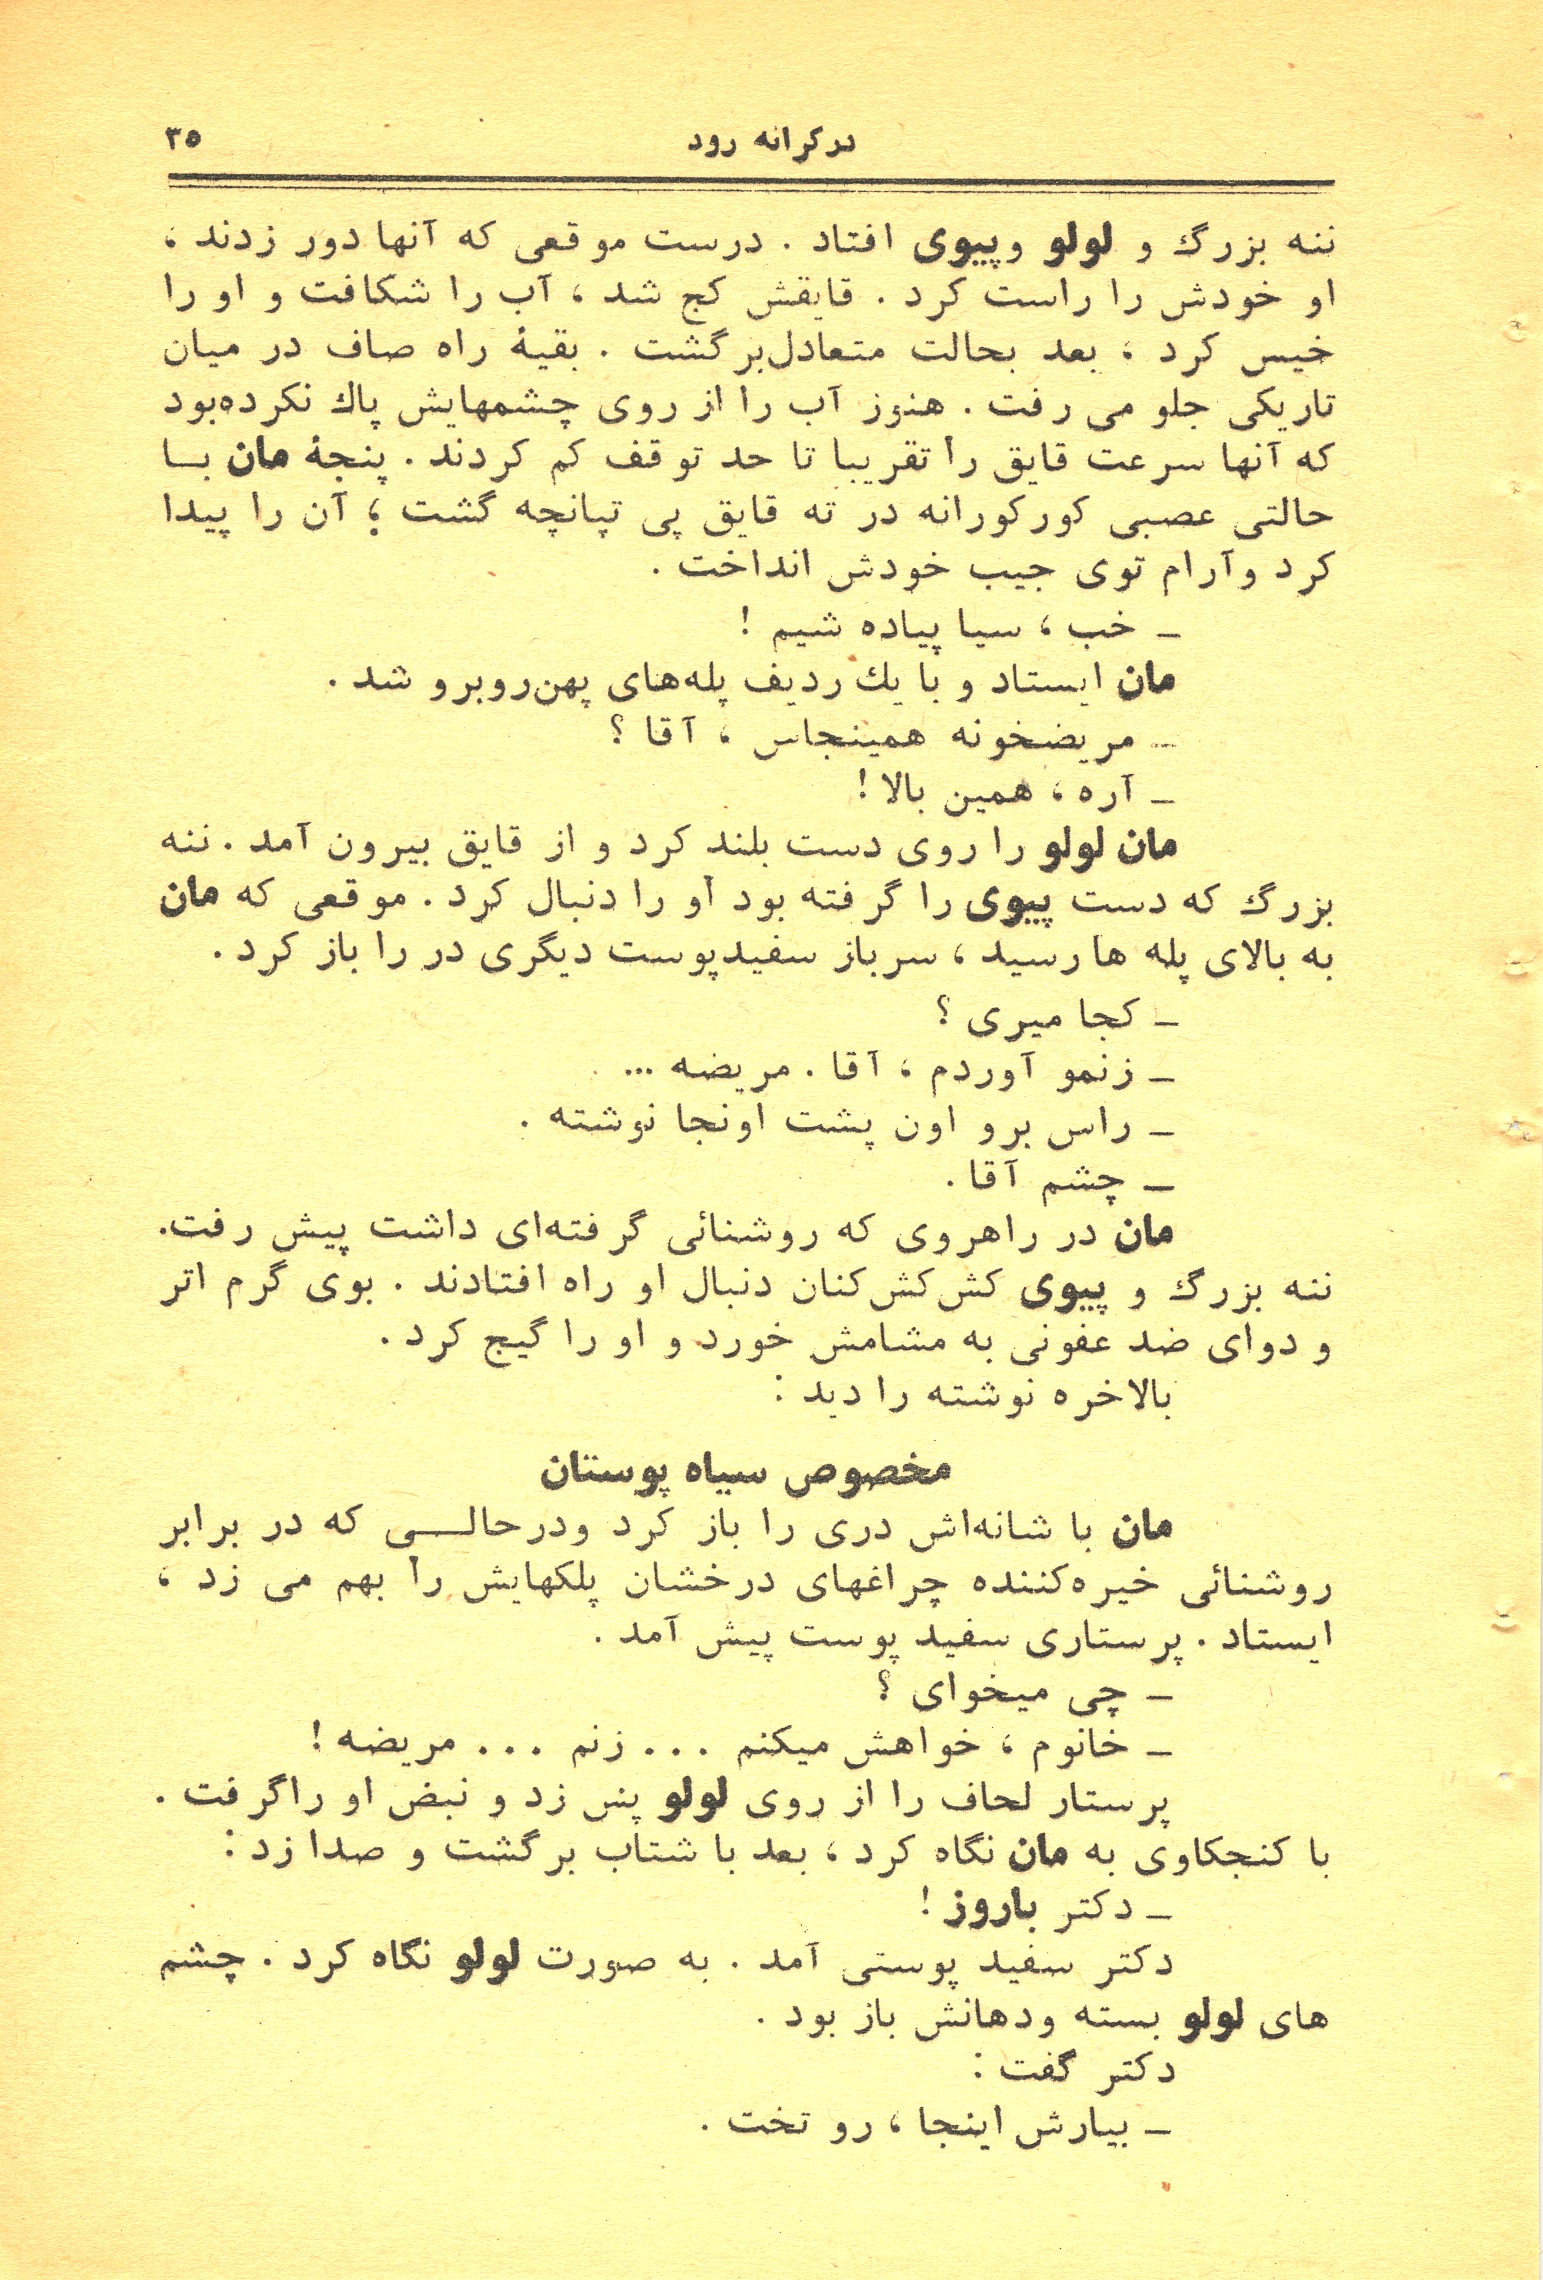 در کرانه رود ۳۵
ننه بزرگ و لولو وپیوی افتاد . درست موقعی که آنها دور زدند ،
او خودش را راست کرد . قایقش کج شد ، آب را شکافت و او را
خیس کرد ، بعد بحالت متعادل برگشت . بقیهٔ راه صاف در میان
تاریکی جلو می رفت . هنوز آب را از روی چشمهایش پاك نکرده بود
که آنها سرعت قایق را تقریبا تا حد توقف کم کردند . پنجهٔ مان بــا
حالتی عصبی کورکورانه در ته قایق پی تپانچه گشت ؛ آن را پیدا
کرد وآرام توی جیب خودش انداخت .
ـ خب ، سیا پیاده شیم !
مان ایستاد و با یك ردیف پله‌های پهن روبرو شد .
ـ مریضخونه همینجاس ، آقا ؟
ـ آره ، همین بالا !
مان لولو را روی دست بلند کرد و از قایق بیرون آمد . ننه
بزرگ که دست پیوی را گرفته بود او را دنبال کرد . موقعی که مان
به بالای پله ها رسید ، سرباز سفیدپوست دیگری در را باز کرد .
ـ کجا میری ؟
ـ زنمو آوردم ، آقا . مریضه ...
ـ راس برو اون پشت اونجا نوشته .
ـ چشم آقا .
مان در راهروی که روشنائی گرفته‌ای داشت پیش رفت.
ننه بزرگ و پیوی کش کش کنان دنبال او راه افتادند . بوی گرم اتر
و دوای ضد عفونی به مشامش خورد و او را گیج کرد .
بالاخره نوشته را دید :
مخصوص سیاه پوستان
مان با شانه‌اش دری را باز کرد ودرحالــی که در برابر
روشنائی خیره‌کننده چراغهای درخشان پلکهایش را بهم می زد ،
ایستاد . پرستاری سفید پوست پیش آمد .
ـ چی میخوای ؟
ـ خانوم ، خواهش میکنم ... زنم ... مریضه !
پرستار لحاف را از روی لولو پس زد و نبض او راگرفت .
با کنجکاوی به مان نگاه کرد ، بعد با شتاب برگشت و صدا زد :
ـ دکتر باروز !
دکتر سفید پوستی آمد . به صورت لولو نگاه کرد . چشم
های لولو بسته ودهانش باز بود .
دکتر گفت :
ـ بیارش اینجا ، رو تخت .